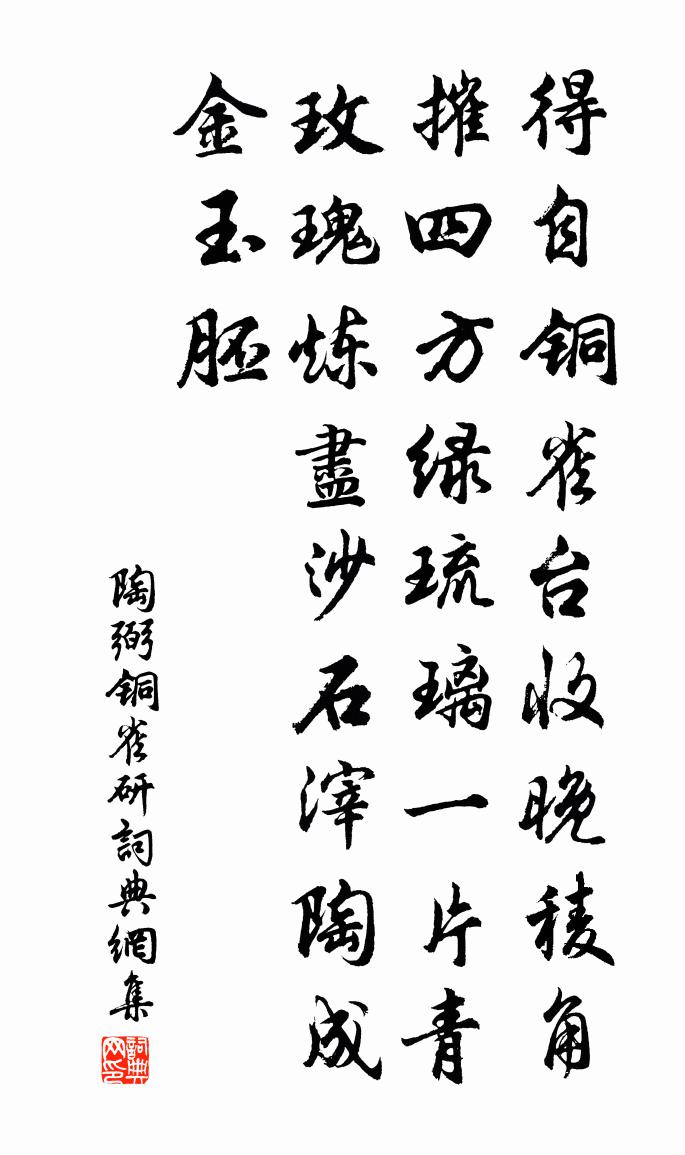 得自铜雀台收晚稜角
摧四方绿琉璃一片青
玫瑰炼盡沙石滓陶成
金玉胚
陶弼铜雀研詞典網集
詞典网印